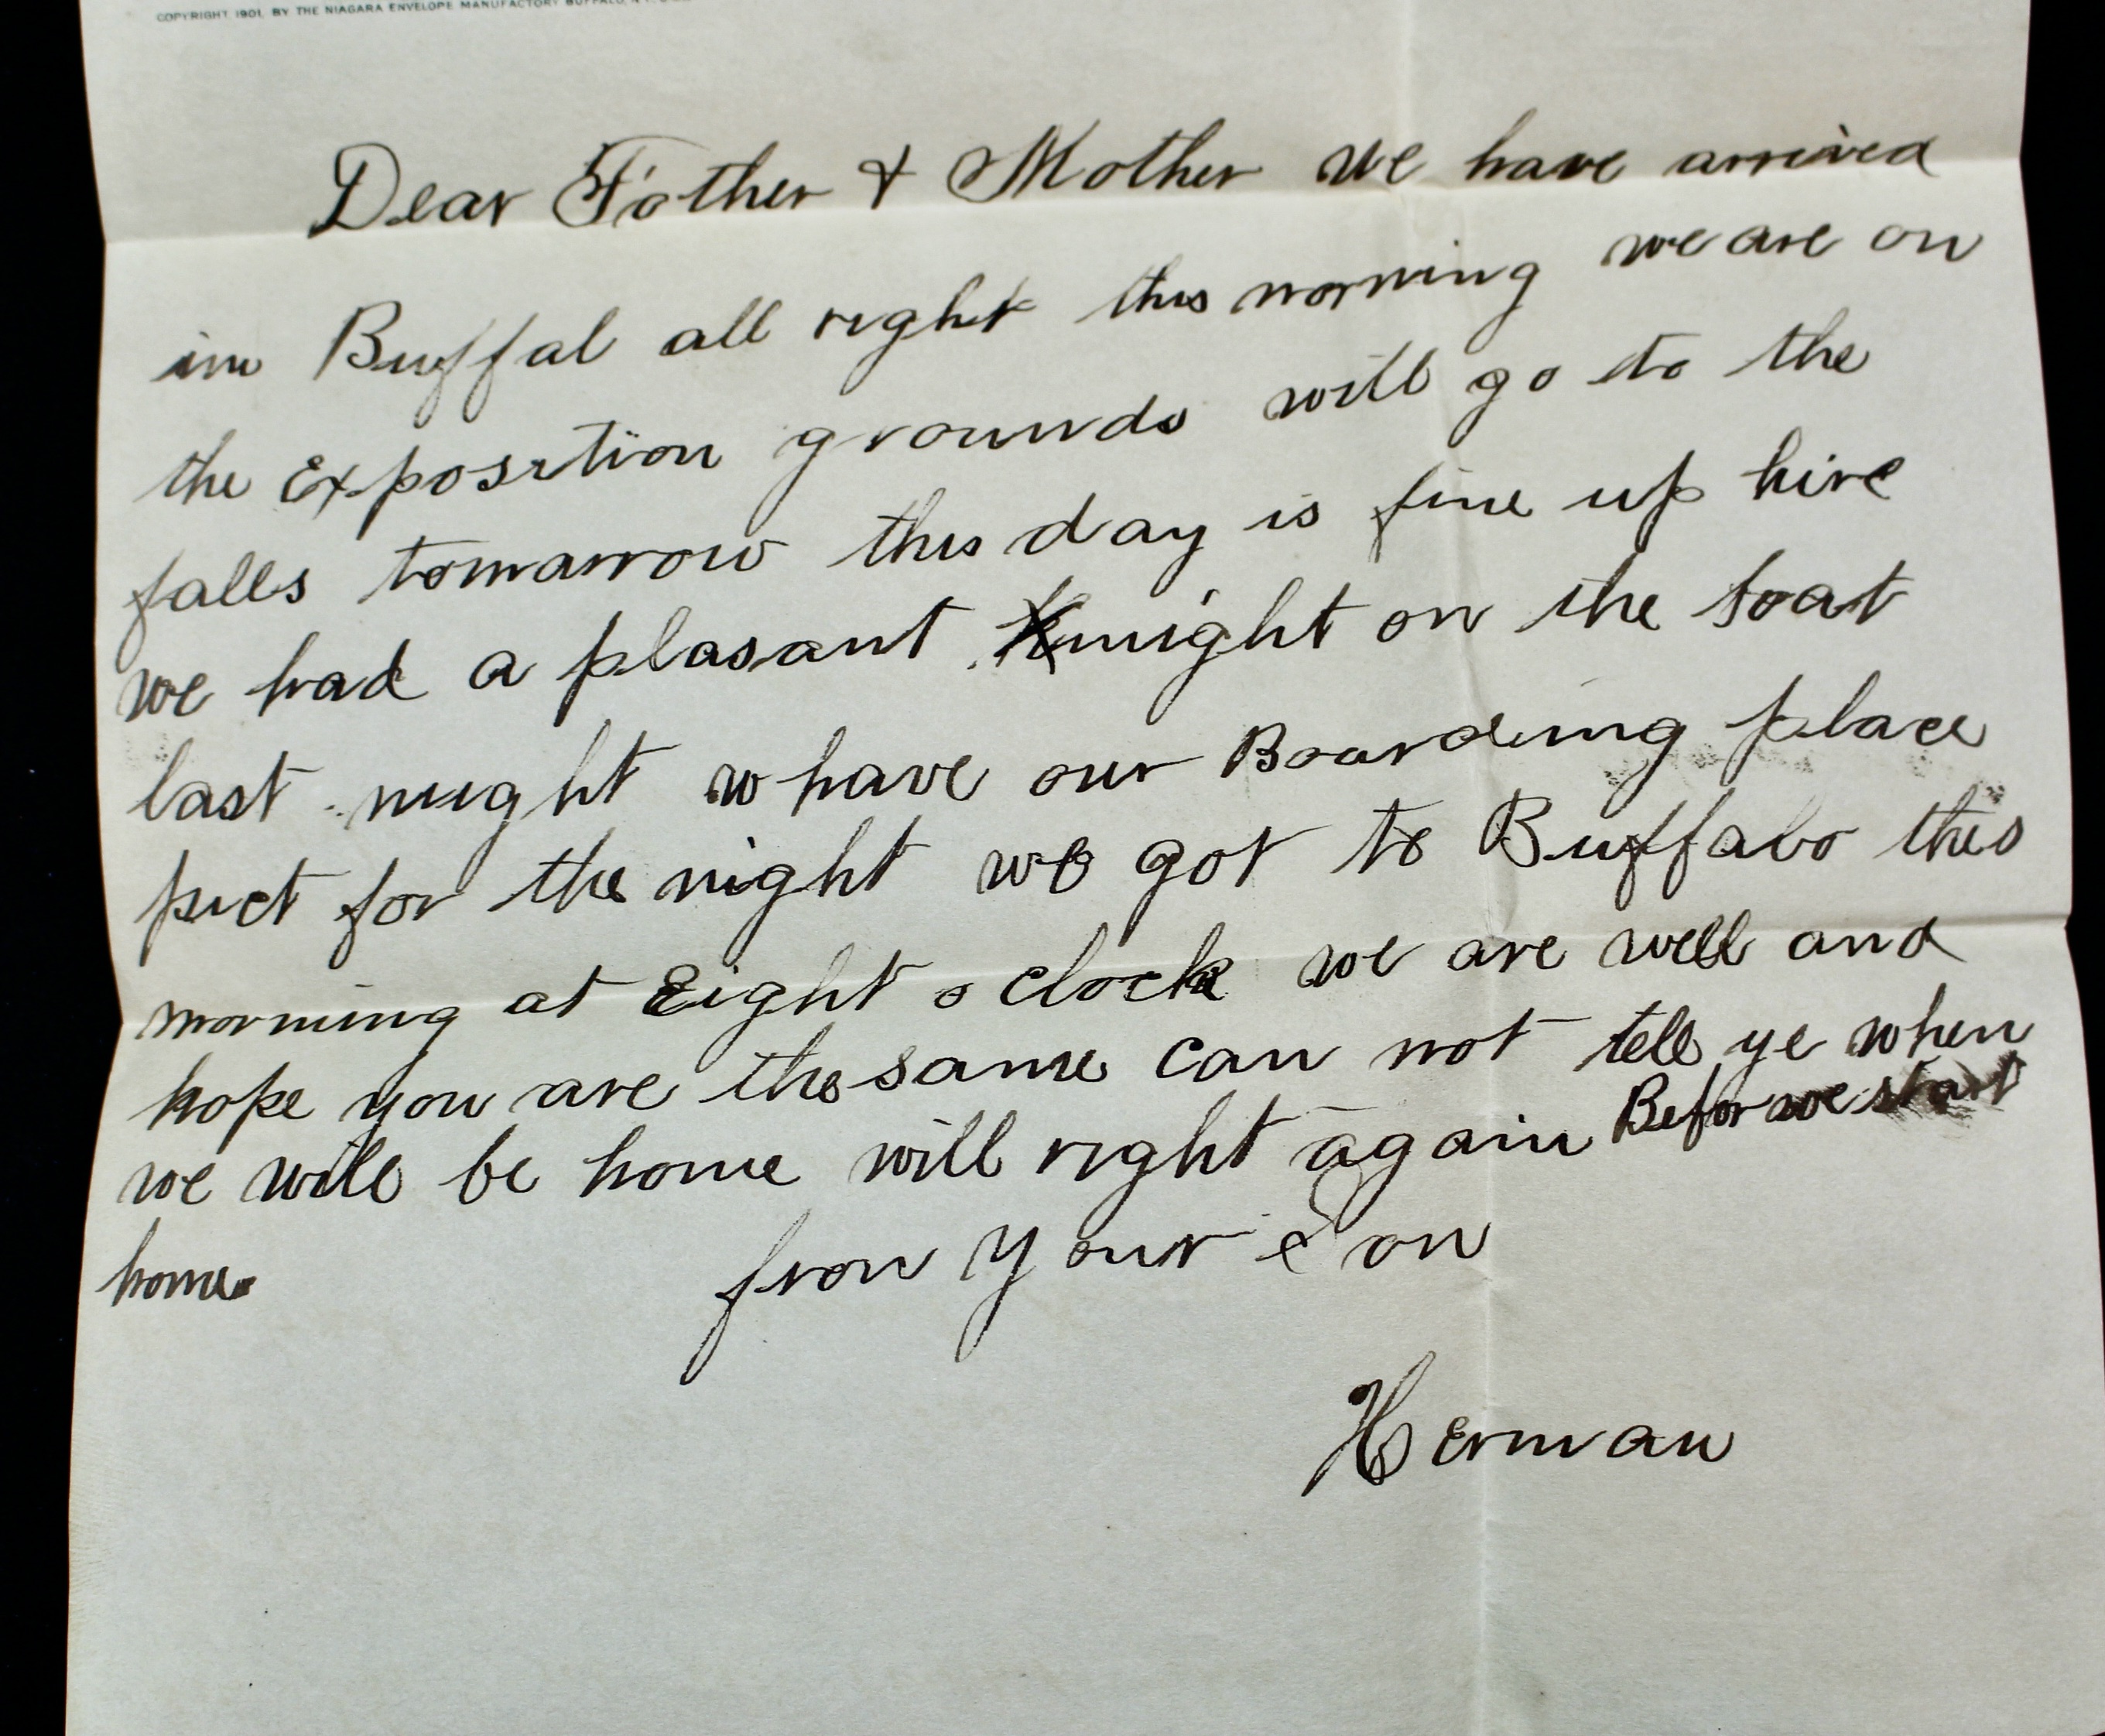 COPYRIGHT 1901, BY THE NIAGARA ENVELOPE MANUFACTORY BUFFALO, N.Y.
Dear Father & Mother we have arrived
in Buffal all right this morning we are on
the Exposition grounds will go to the
falls tomarrow this day is fine up hire
we had a plasant night on the boat
last night w have our Boarding place
pict for the night we got to Buffalo this
morning at Eight o clock we are well and
hope you are the same can not tell ye when
we will be home will right again Befor we start
home.
from Your Son
Herman